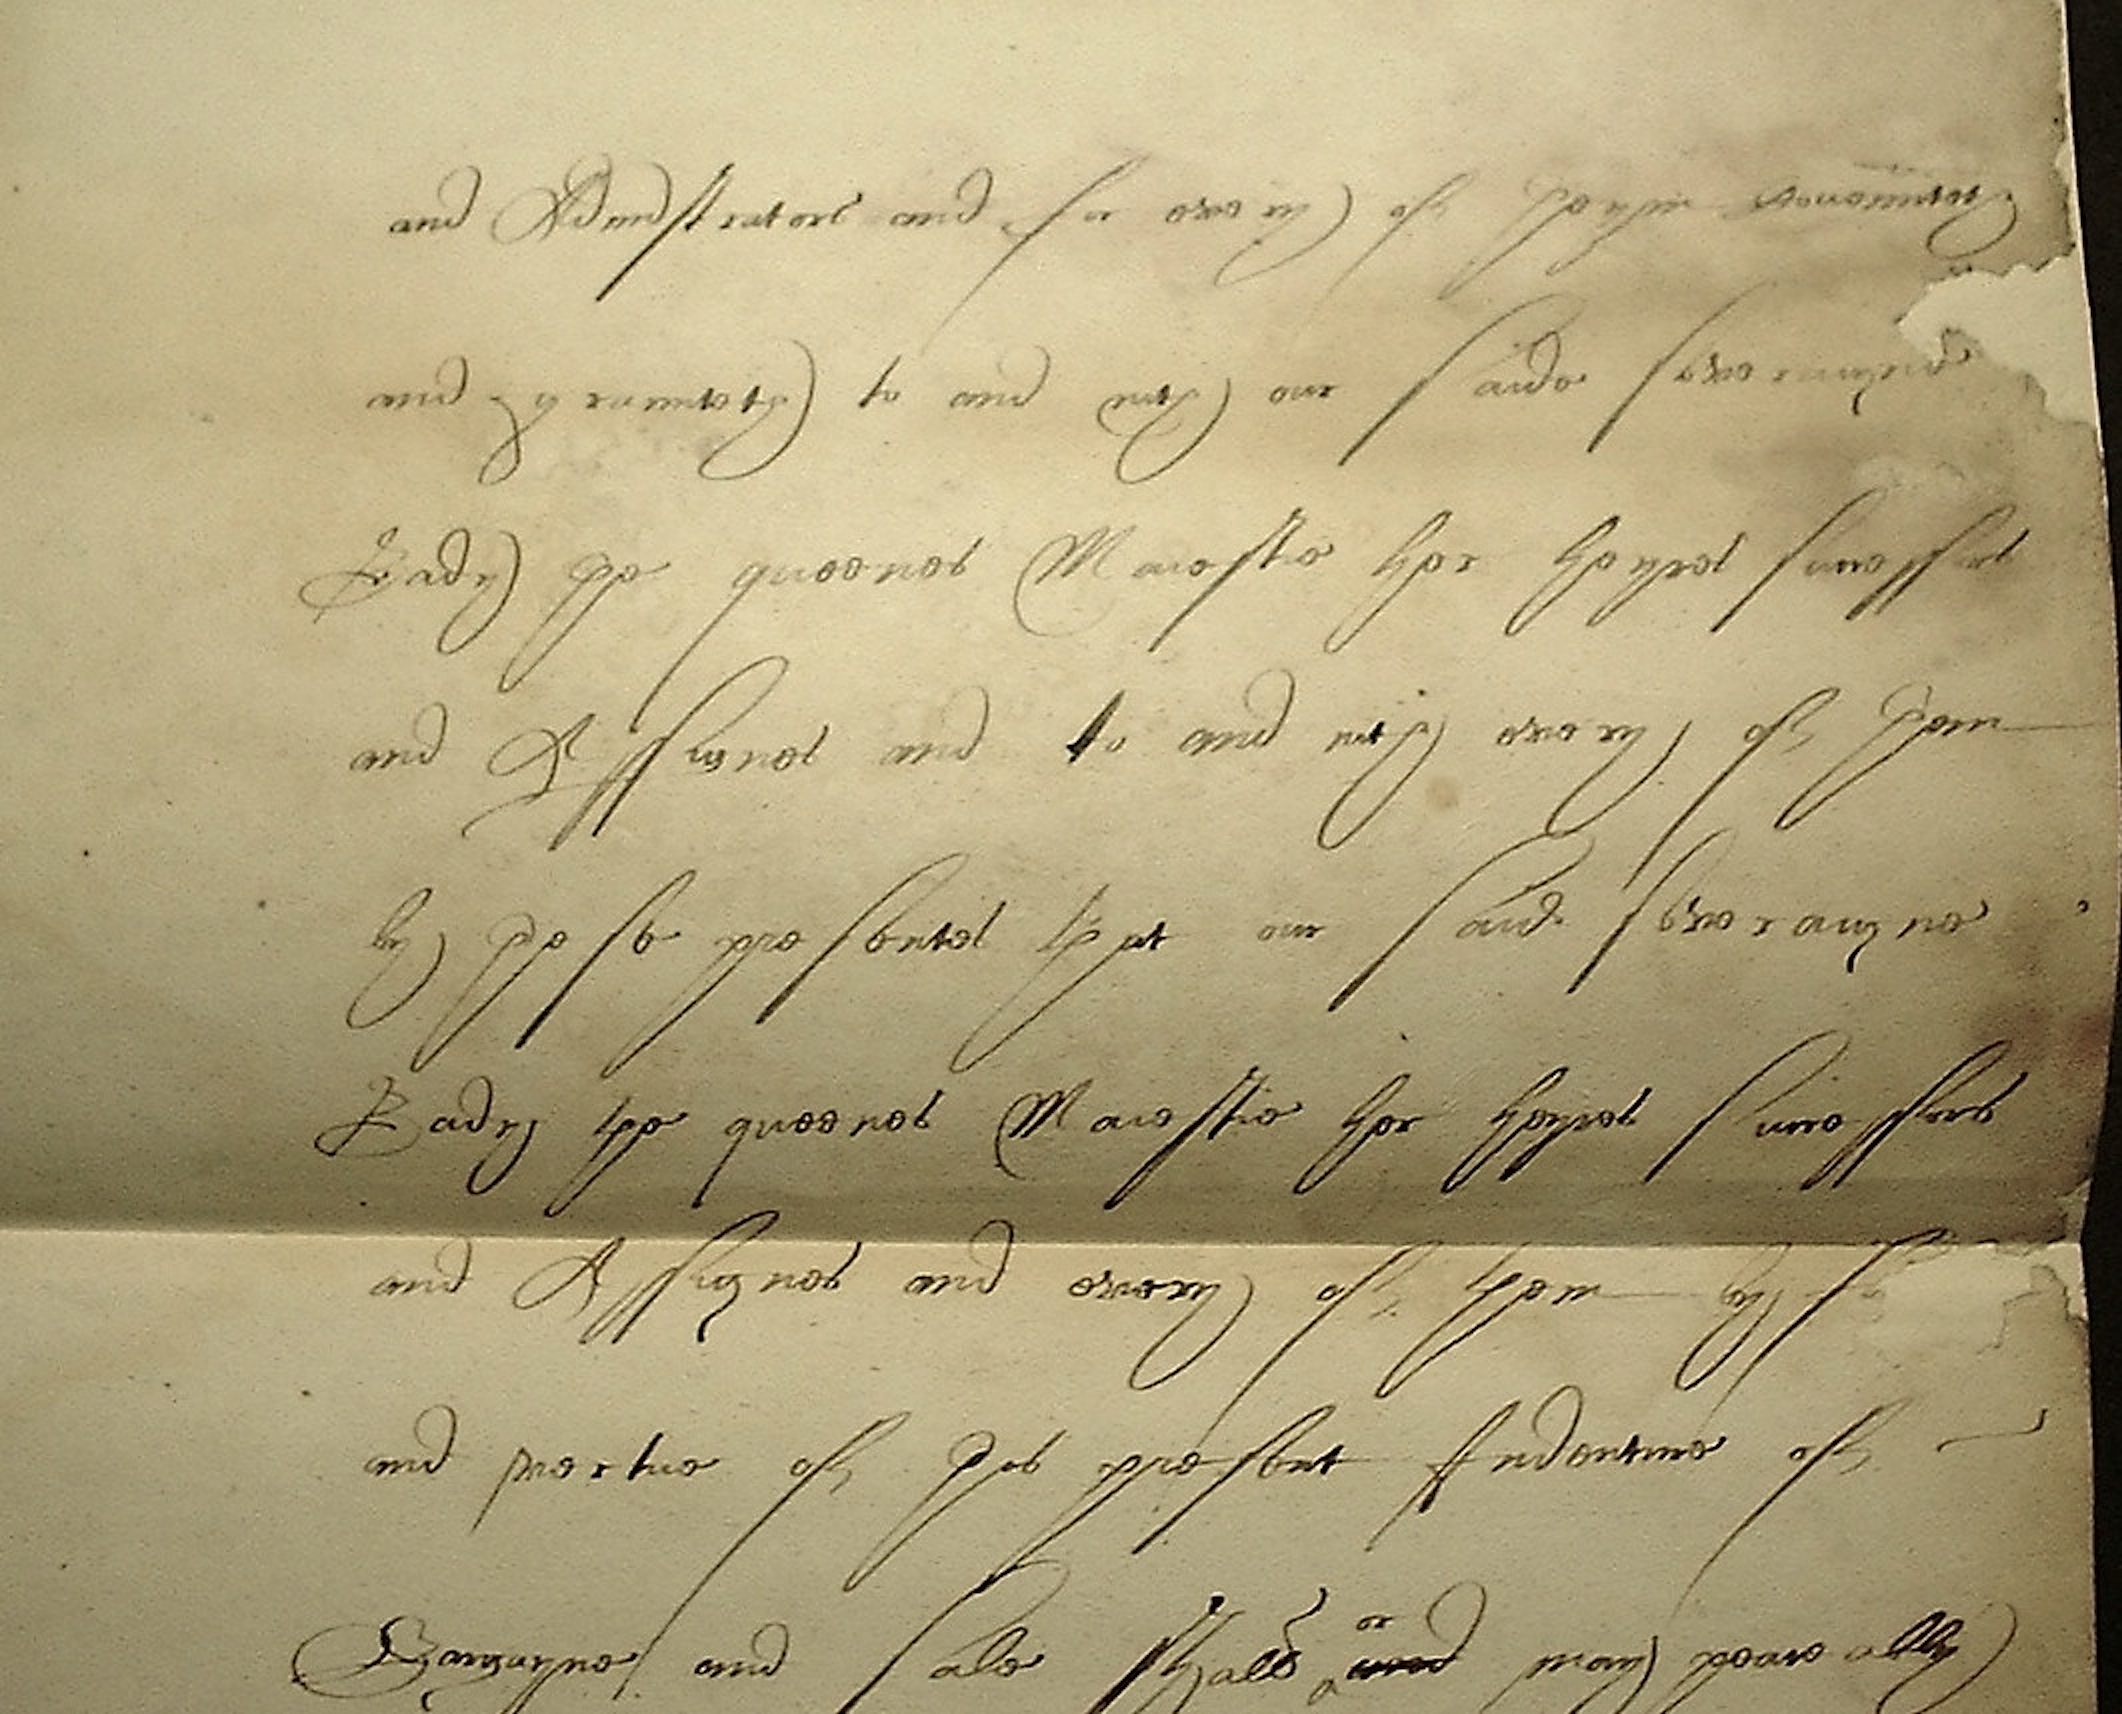 and Admistrators and for every of theym Covennteth
and graunteth to and with our saide Soveraigne
Lady the queenes Maiestie her heyres successors
and Assignes and to and with every of them
by these presentes that our saide Soveraigne
Lady the queenes Maiestie her heyres successors
and Assignes and every of them by
and vertue of this present Indenture of
Bargayne and sale shall or and may peaceably